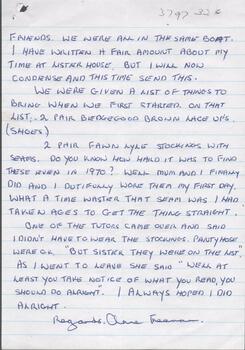 3797 32c
FRIENDS. WE WERE ALL IN THE SAME BOAT.
I HAVE WRITTEN A FAIR AMOUNT ABOUT MY
TIME AT LISTER HOUSE, BUT I WILL NOW
CONDENSE AND THIS TIME SEND THIS.
WE WERE GIVEN A LIST OF THINGS TO
BRING WHEN WE FIRST STARTED. ON THAT
LIST:- 2 PAIR BEDGEGOOD BROWN LACE UPS.
(SHOES)
2 PAIR FAWN LYLE STOCKINGS WITH
SEAMS. DO YOU KNOW HOW HARD IT WAS TO FIND
THESE EVEN IN 1970? WELL MUM AND I FINALLY
DID AND I DUTIFULLY WORE THEM MY FIRST DAY.
WHAT A TIME WASTER THAT SEAM WAS I HAD
TAKEN AGES TO GET THE THING STRAIGHT.
ONE OF THE TUTORS CAME OVER AND SAID
I DIDN'T HAVE TO WEAR THE STOCKINGS. PANTYHOSE
WERE O.K. "BUT SISTER THEY WERE ON THE LIST".
AS I WENT TO LEAVE SHE SAID "WELL AT
LEAST YOU TAKE NOTICE OF WHAT YOU READ, YOU
SHOULD DO ALRIGHT. I ALWAYS HOPED I DID
ALRIGHT.
Regards,